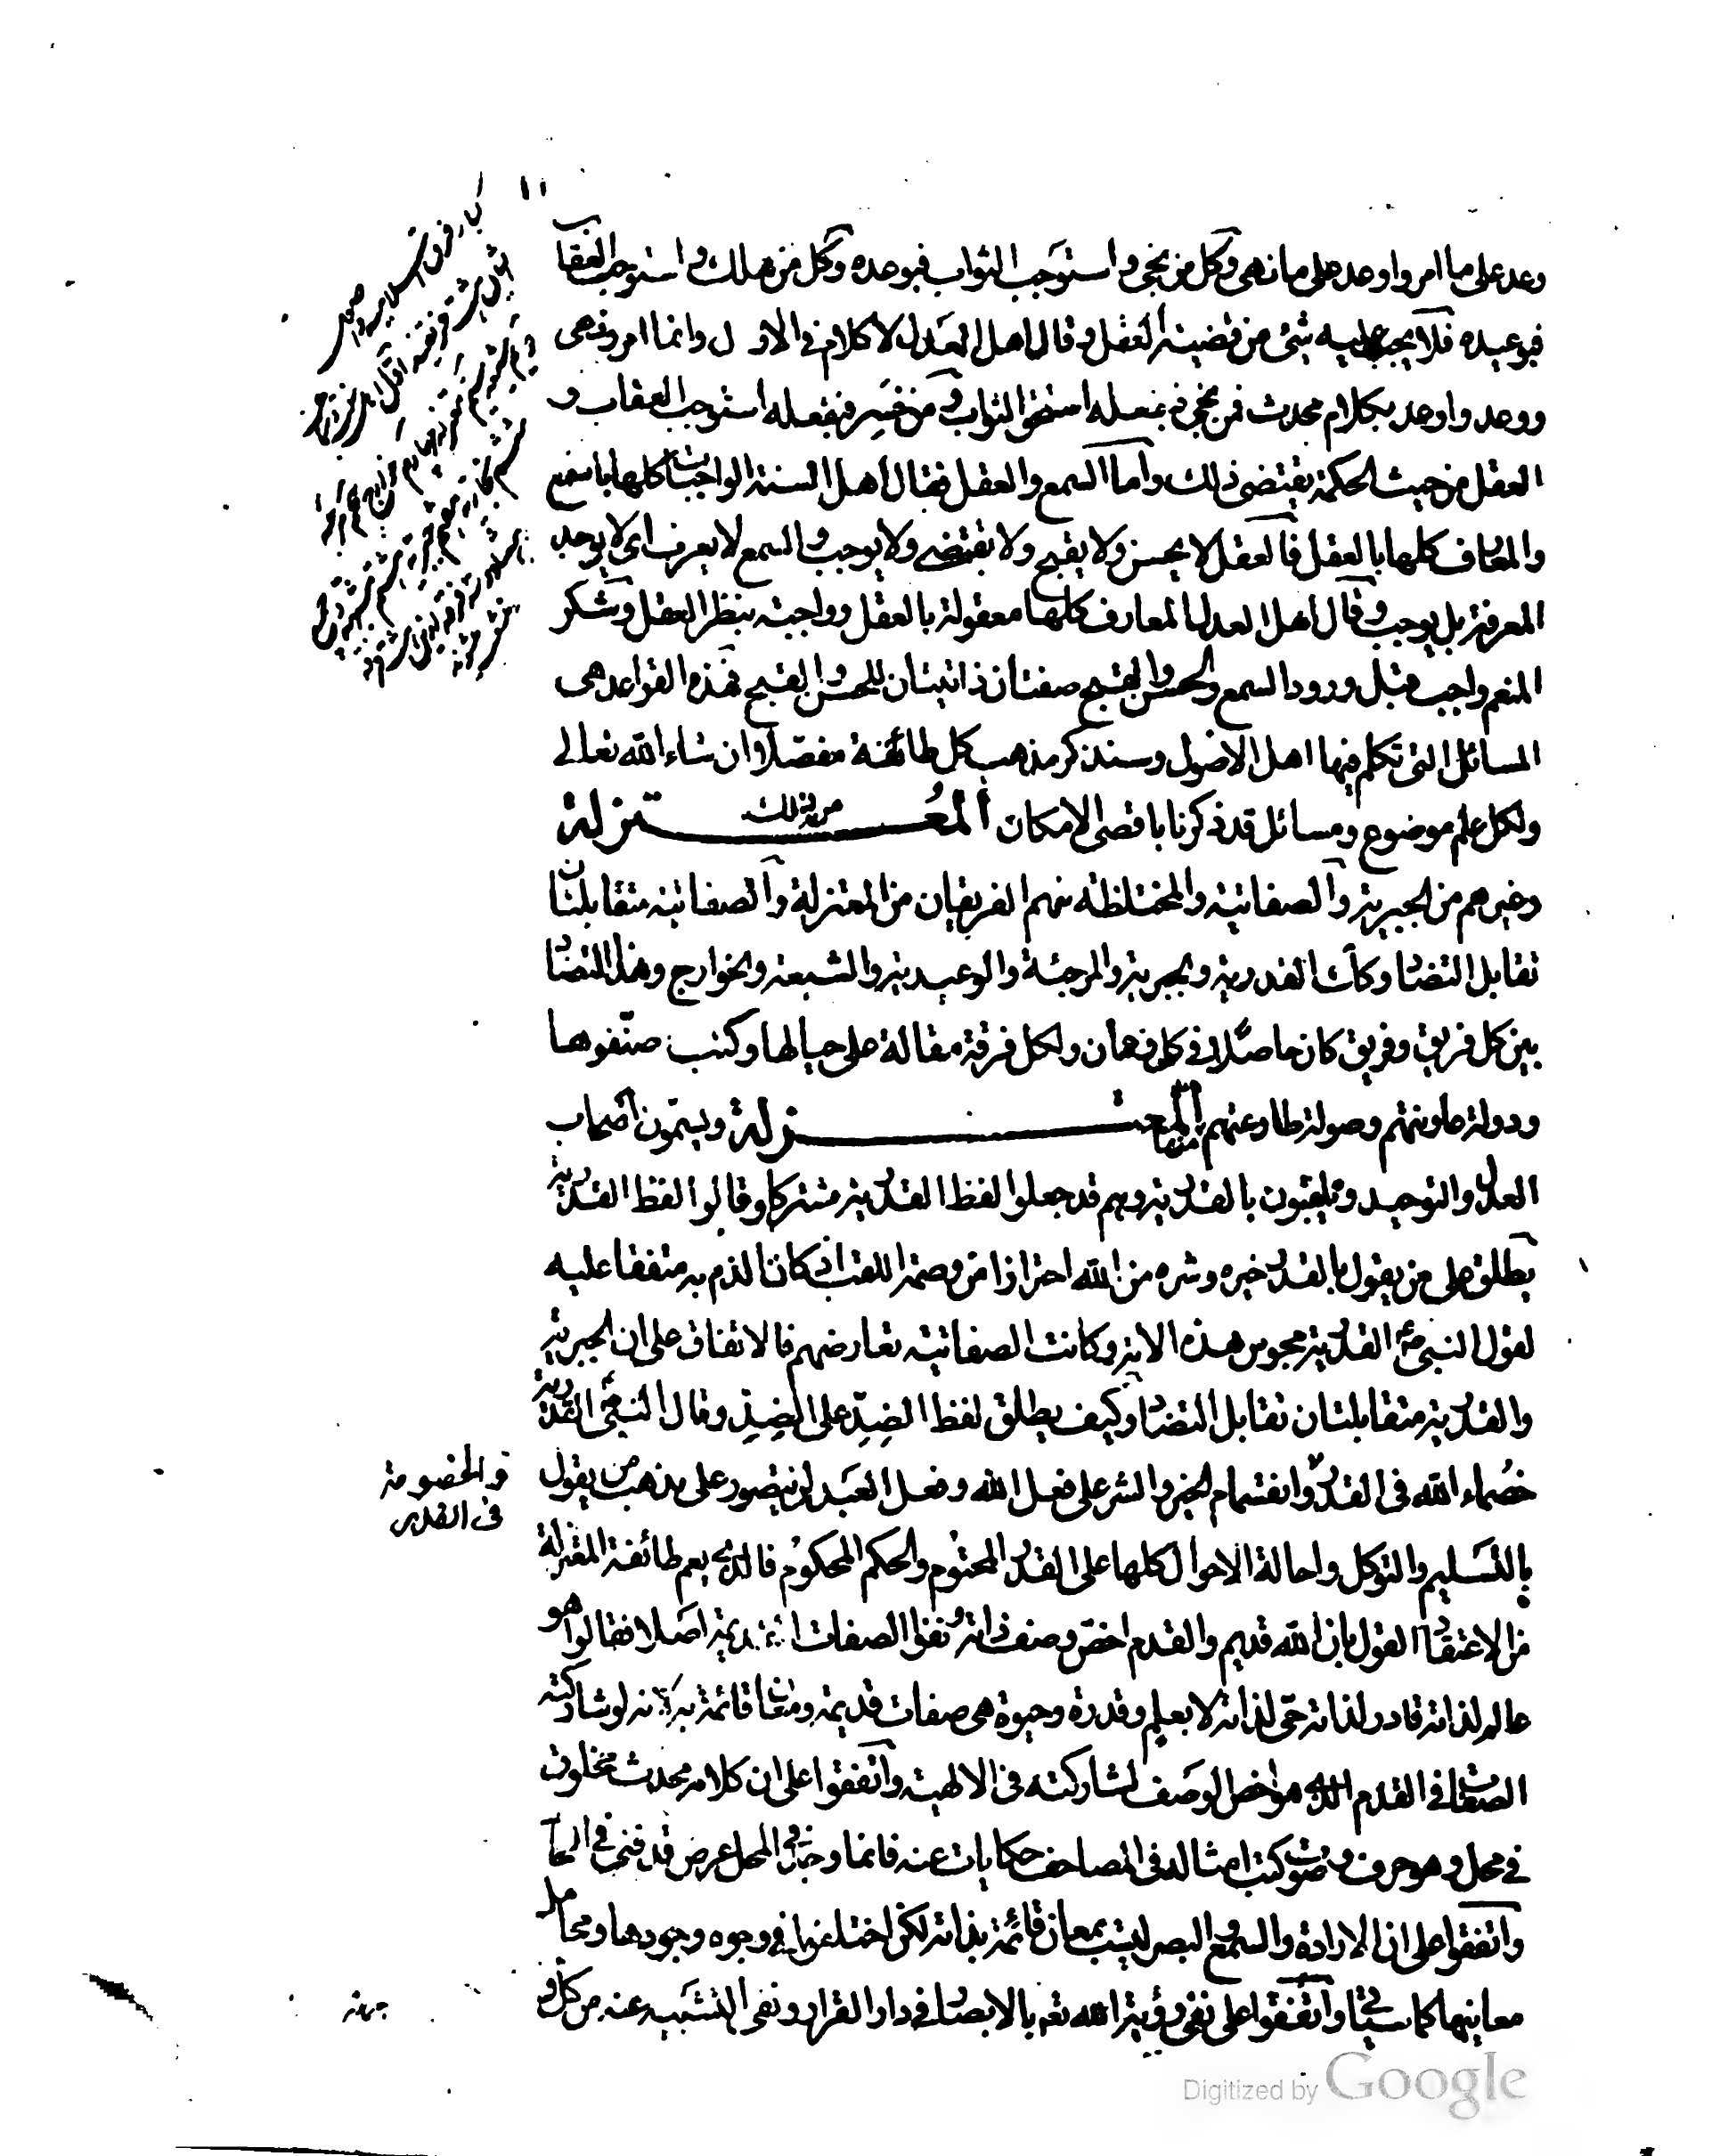 ١١
وعد على ما امر واوعد على ما نهى وكل من نجى واستوجب الثواب فبوعده وكل من هلك واستوجب العقاب
فبوعيده فلا يجب عليه شئ من قضية العقل وقال اهل العدل لا كلام فى الازل وانما امر ونهى
ووعد واوعد بكلام محدث فمن نجى فبفعله استحق الثواب ومن خسر فبفعله استوجب العقاب و
العقل من حيث الحكمة يقتضى ذلك واما السمع والعقل فقال اهل السنة الواجبات كلها بالسمع
والمعارف كلها بالعقل فالعقل لا يحسن ولا يقبح ولا يقتضى ولا يوجب والسمع لا يعرف اى لا يوجد
المعرفة بل يوجب وقال اهل العدل المعارف كلها معقولة بالعقل وواجبة بنظر العقل وشكر
المنعم واجب قبل ورود السمع والحسن والقبح صفتان ذاتيتان للحسن والقبح فهذه القواعد هى
المسائل التى تكلم فيها اهل الاصول وسنذكر مذهب كل طائفة مفصلا ان شاء الله تعالى
ولكل علم موضوع ومسائل قد ذكرنا باقصى الامكان المعتزلة
وغيرهم من الجبرية والصفاتية والمختلطة منهم الفريقان من المعتزلة والصفاتية متقابلتان
تقابل التضاد وكذلك القدرية والجبرية والمرجئة والوعيدية والشيعة والخوارج وهذا التضاد
بين كل فريق وفريق كان حاصلا فى كل زمان ولكل فرقة مقالة على حيالها وكتب صنفوها
ودولة عاونتهم وصولة طاوعتهم المعتزلة ويسمون اصحاب
العدل والتوحيد ويلقبون بالقدرية وهم قد جعلوا لفظ القدرية مشتركا وقالوا لفظ القدرية
يطلق على من يقول بالقدر خيره وشره من الله احترازا من وصمة اللقب اذ كان الذم به متفقا عليه
لقول النبى القدرية مجوس هذه الامة وكانت الصفاتية تعارضهم فالاتفاق على ان الجبرية
والقدرية متقابلتان تقابل التضاد وكيف يطلق لفظ الضد على الضد وقال النبى القدرية
خصماء الله فى القدر وانقسام الخير والشر على فعل الله وفعل العبد لن يتصور على مذهب من يقول
والخصومة
فى القدر
بالتسليم والتوكل واحالة الاحوال كلها على القدر المحتوم والحكم المحكوم فالذى يعم طائفة المعتزلة
من الاعتقاد القول بان الله قديم والقدم اخص وصف ذاته ونفوا الصفات القديمة اصلا فقالوا هو
عالم لذاته قادر لذاته حى لذاته لا بعلم وقدرة وحيوة هى صفات قديمة ومعان قائمة به لانه لو شاركته
الصفات فى القدم الذى هو اخص الوصف لشاركته فى الالهية واتفقوا على ان كلامه محدث مخلوق
فى محل وهو حرف وصوت كتب امثاله فى المصاحف حكايات عنه فانما وجد فى المحل عرض قد فنى فى الحال
واتفقوا على ان الارادة والسمع والبصر ليست بمعان قائمة بذاته لكن اختلفوا فى وجوه وجودها ومحامل
معانيها كما سيأتى واتفقوا على نفى رؤية الله تعه بالابصار فى دار القرار ونفى التشبيه عنه من كل و
جهة
Digitized by Google